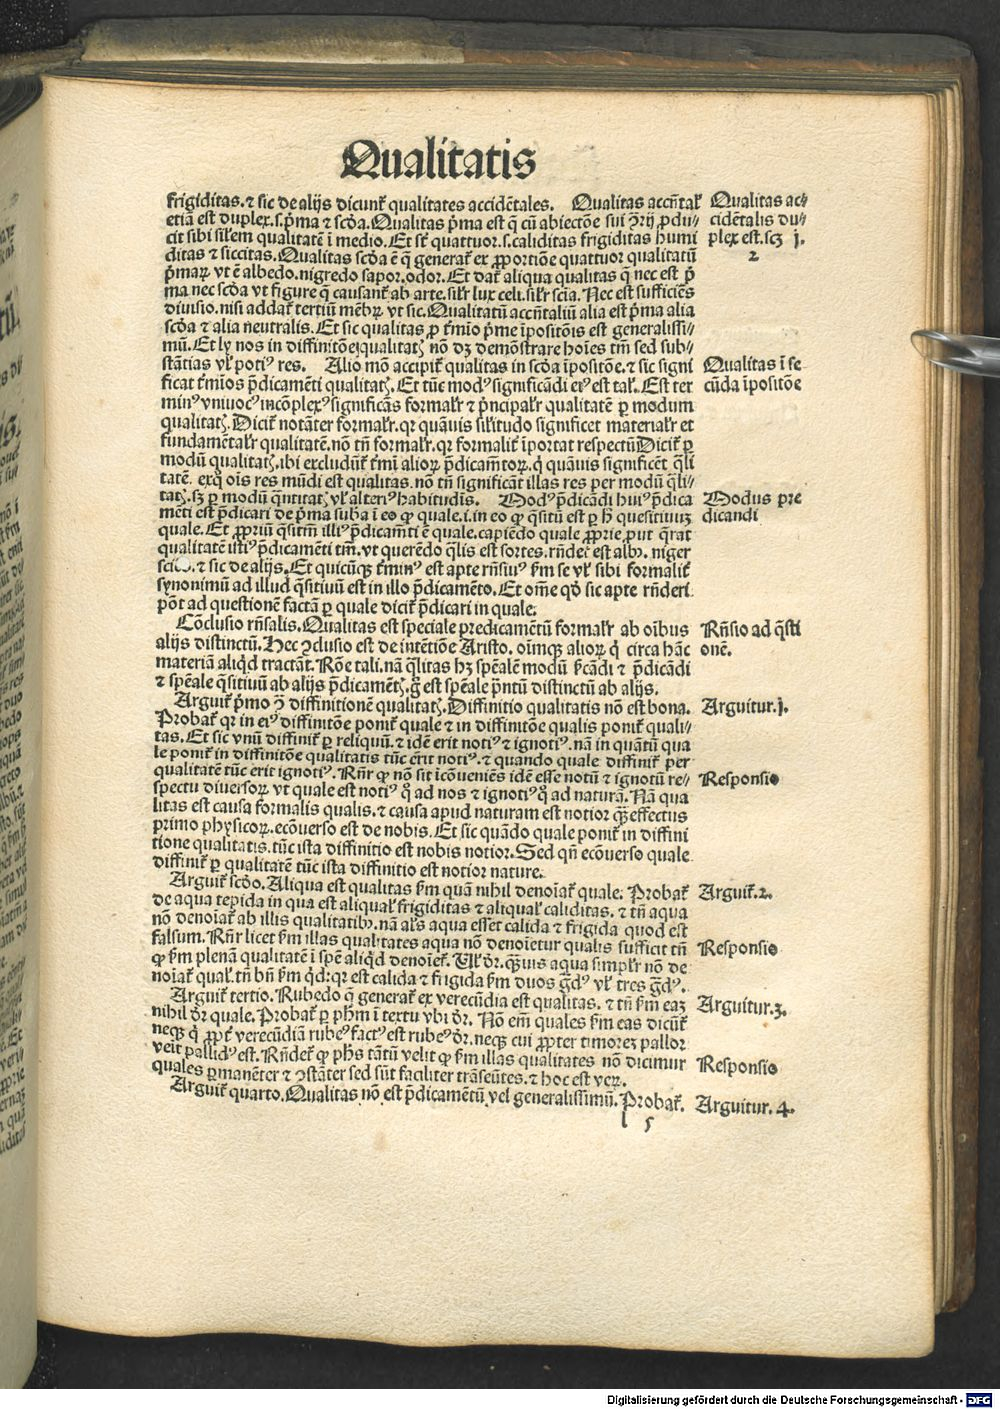 Qualitatis
frigiditas. ⁊ sic de alijs dicunt̃ qualitates accidẽtales. Qualitas accñtał
etiã est duplex. s. p̃ma ⁊ scd̃a. Qualitas p̃ma est q̃ cũ abiectõe sui ꝯ̃rij ꝓdu⸗
cit sibi siłem qualitatẽ ĩ medio. Et st̃ quattuor. s. caliditas frigiditas humi
ditas ⁊ siccitas. Qualitas scd̃a ẽ q̃ generat̃ ex ꝓportiõe quattuor qualitatũ
p̃maꝝ vt ẽ albedo. nigredo sapor. odor. Et dat̃ aliqua qualitas q̃ nec est p̃
ma nec scd̃a vt figure q̃ causant̃ ab arte. siłr lux celi. siłr scĩa. Nec est sufficiẽs
diuisio. nisi addat̃ tertiũ mẽbꝝ vt sic. Qualitatũ accñtaliũ alia est p̃ma alia
scd̃a ⁊ alia neutralis. Et sic qualitas ꝓ t̃mĩo p̃me ĩpositõis est generalissi⸗
mũ. Et ly nos in diffinitõe qualitatꝭ nõ dꝫ demõstrare hoĩes tm̃ sed sub⸗
stãtias vł potiꝰ res. Alio mõ accipit̃ qualitas in scd̃a ĩpositõe. ⁊ sic signi
ficat t̃mĩos p̃dicamẽti qualitatꝭ. Et tũc modꝰ significãdi eiꝰ est tał. Est ter
minꝰ vniuocꝰ incõplexꝰ significãs formałr ⁊ p̃ncipałr qualitatẽ ꝑ modum
qualitatꝭ. Dicit̃ notãter formałr. qꝛ quãuis siłitudo significet materiałr et
fundamẽtałr qualitatẽ. nõ tñ formałr. qꝛ formalit̃ ĩportat respectũ Dicit̃ ꝑ
modũ qualitatꝭ. ibi excludũt̃ t̃mĩ alioꝝ p̃dicam̃toꝝ. q̇ quãuis significẽt q̃li
tatẽ. ex quo oĩs res mũdi est qualitas. nõ tñ significãt illas res per modũ q̃li⸗
tatꝭ. sꝫ ꝑ modũ q̃ntitatꝭ vł alteriꝰ habitudĩs. Modꝰ p̃dicãdi huiꝰ p̃dica
mẽti est p̃dicari de p̃ma suba ĩ eo ꝙ quale. i. in eo ꝙ q̃sitũ est ꝑ h̃ quesitiuuꝫ
quale. Et ꝓpriũ q̃sitm̃ illiꝰ p̃dicam̃ti ẽ quale. capiẽdo quale ꝓprie. put q̃rat
qualitatẽ istiꝰ p̃dicamẽti tm̃. vt querẽdo q̃lis est sortes. rñdet̃ est albꝰ. niger
⁊ sic de alijs. Et quicũqꝫ t̃minꝰ est apte rñsiuꝰ ẜm se vł sibi formalit̃
synonimũ ad illud q̃sitiuũ est in illo p̃dicamẽto. Et om̃e qd̃ sic apte rñderi
põt ad questionẽ factã ꝑ quale dicit̃ p̃dicari in quale.
Cõclusio rñsalis. Qualitas est speciale predicamẽtũ formałr ab oĩbus
alijs distinctũ. Hec ꝯclusio est de intẽtiõe Aristo. oĩmqꝫ alioꝝ q̇ circa hãc
materiã aliqd̃ tractãt. Rõe tali. nã q̃litas hꝫ sp̃ealẽ modũ ẜcãdi ⁊ p̃dicãdi
⁊ sp̃eale q̃sitiuũ ab alijs p̃dicamẽtꝭ. g̃ est sp̃eale p̃ntũ distinctũ ab alijs.
Arguit̃ p̃mo ꝯ̃ diffinitionẽ qualitatꝭ. Diffinitio qualitatis nõ est bona.
Probat̃ qꝛ in eiꝰ diffinitõe ponit̃ quale ⁊ in diffinitõe qualis ponit̃ quali⸗
tas. Et sic vnũ diffinit̃ ꝑ reliquũ. ⁊ idẽ erit notiꝰ ⁊ ignotiꝰ. nã in quãtũ qua
le ponit̃ in diffinitõe qualitatis tũc erit notiꝰ. ⁊ quando quale diffinit̃ per
qualitatẽ tũc erit ignotiꝰ. Rñr ꝙ nõ sit ĩcõueniẽs idẽ esse notũ ⁊ ignotũ re⸗
spectu diuersoꝝ vt quale est notiꝰ qͦ ad nos ⁊ ignotiꝰ qͦ ad naturã. Nã qua
litas est causa formalis qualis. ⁊ causa apud naturam est notior qꝫ effectus
primo physicoꝝ. ecõuerso est de nobis. Et sic quãdo quale ponit̃ in diffini
tione qualitatis. tũc ista diffinitio est nobis notior. Sed qñ ecõuerso quale
diffinit̃ ꝑ qualitatẽ tũc ista diffinitio est notior nature.
Arguit̃ scd̃o. Aliqua est qualitas ẜm quã nihil denoĩat̃ quale. Probat̃
de aqua tepida in qua est aliqualꝰ frigiditas ⁊ aliqualꝰ caliditas. ⁊ tñ aqua
nõ denoĩat̃ ab illis qualitatibꝰ. nã als̃ aqua esset calida ⁊ frigida quod est
falsum. Rñr licet ẜm illas qualitates aqua nõ denoĩetur qualis sufficit tñ
ꝙ ẜm plenã qualitatẽ ĩ sp̃e aliqd̃ denoĩet̃. Vł dr̃. qꝫuis aqua simpłr nõ de
noĩat̃ qual. tñ bñ ẜm qd̃: qꝛ est calida ⁊ frigida ẜm duos g̃dꝰ vł tres g̃dꝰ.
Arguit̃ tertio. Rubedo q̃ generat̃ ex verecũdia est qualitas. ⁊ tñ ẜm eaꝫ
nihil dr̃ quale. Probat̃ ꝑ pħm ĩ textu vbi dr̃. Nõ em̃ quales ẜm eas dicũt̃
neqꝫ q̇ ꝓpt̃ verecũdiam rubeꝰ factꝰ est rubeꝰ dr̃. neqꝫ cui ꝓpter timoreꝫ pallor
veit pallidꝰ est. Rñdet̃ ꝙ pħs tãtũ velit ꝙ ẜm illas qualitates nõ dicimur
quales ꝑmanẽter ⁊ ꝯstãter sed sũt faciliter trãseũtes. ⁊ hoc est veꝝ.
Arguit̃ quarto. Qualitas nõ est p̃dicamẽtũ vel generalissimũ. Probat̃.
l 5
Qualitas ac⸗
cidẽtalis du⸗
plex est. scꝫ 1.
2
Qualitas ĩ se
cũda ĩpositõe
Modus pre
dicandi
Rñsio ad q̃sti
onẽ.
Arguitur. 1.
Responsio
Arguit̃. 2.
Responsio
Arguitur. 3.
Responsio
Arguitur. 4.
Digitalisierung gefördert durch die Deutsche Forschungsgemeinschaft - DFG